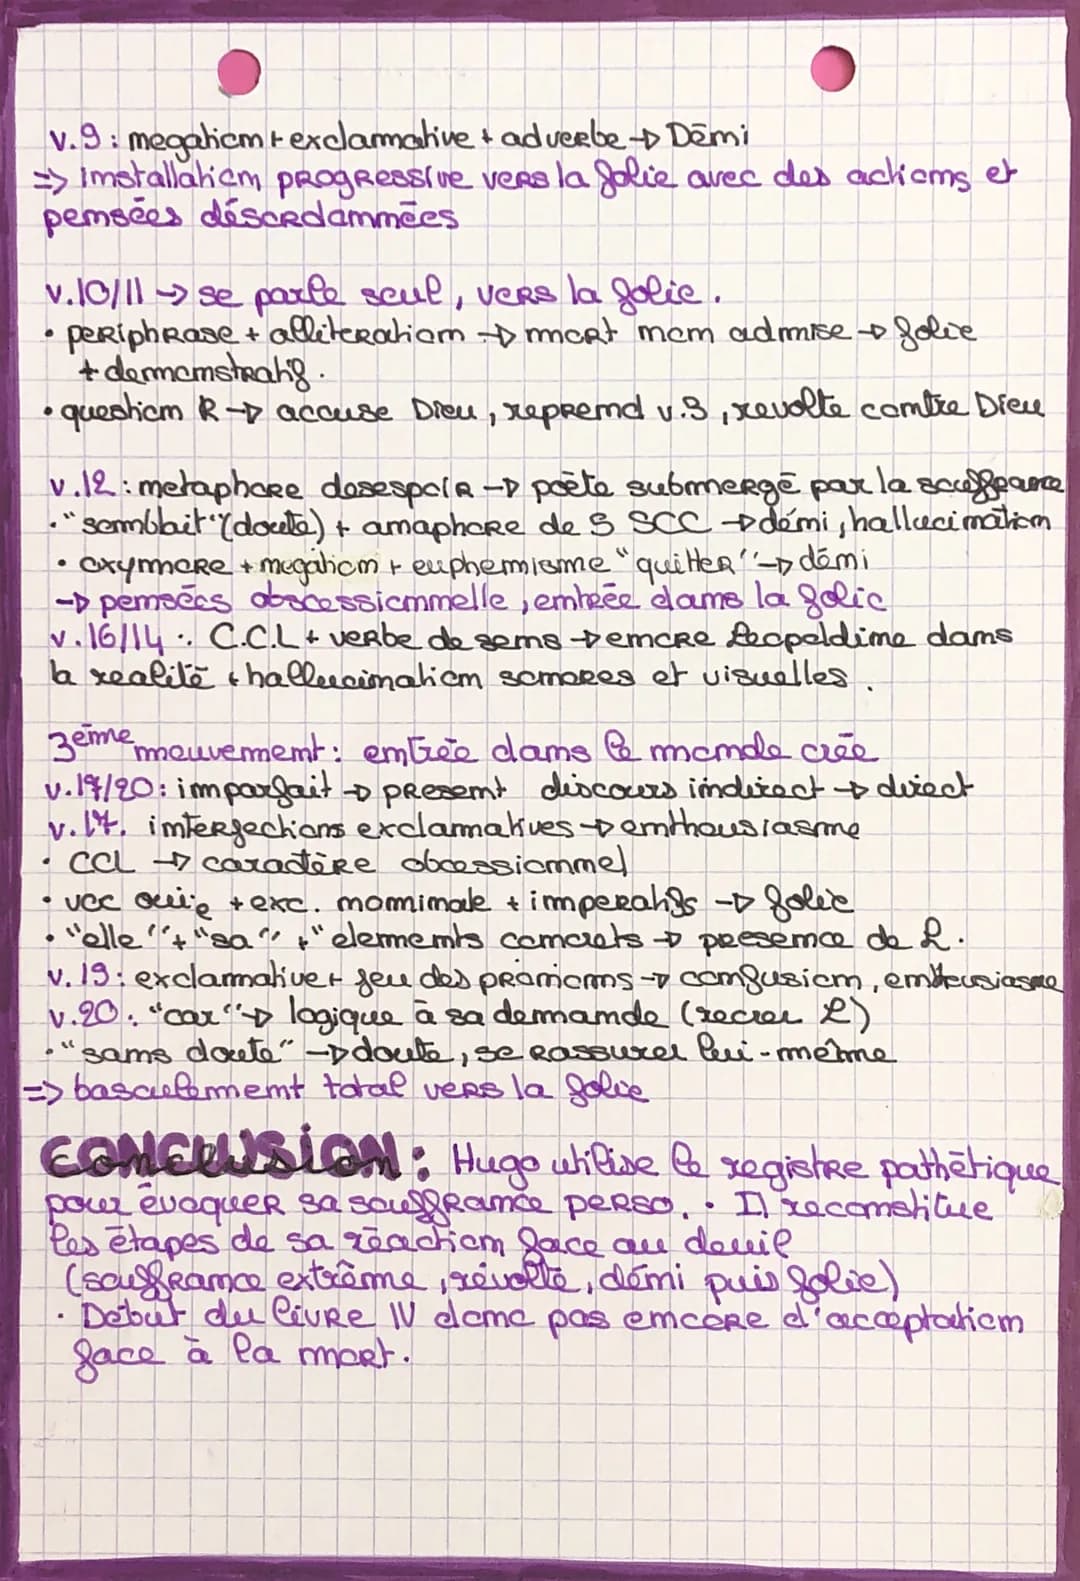 v.9 : negation + exclamative + adverbe → Déni
=> installation progressive vers la folie avec des actions et
pensées désordonnées
v.10/11 → se parle seul, vers la folie.
• periphrase + alliteration → mort non admise → folie
+ demonstratif.
• question R → accuse Dieu, reprend v.3, revolte contre Dieu
v.12 : metaphore desespoir → poète submergé par la souffrance
• "semblait" (doute) + anaphore de 3 SCC → déni, hallucination
• oxymore + negation + euphemisme "quitter" → déni
→ pensées obsessionnelle, entrée dans la folie
v.16/14 : C.C.L + verbe de sens → encre Leopoldine dans
la realité + hallucination sonores et visuelles.
3ème mouvement : entrée dans le monde crée
v.17/20 : imparfait → present discours indirect → direct
v.17. interjections exclamatives → enthousiasme
• CCL → caractère obsessionnel
• voc ouïe + exc. nominale + imperatifs → folie
• "elle" + "sa" + "elements concrets → presence de L.
v.19 : exclamative + jeu des pronoms → confusion, enthousiasme
v.20 : "car" → logique à sa demande (recreer L)
• "sans doute" → doute, se rassurer lui-même
=> basculement total vers la folie
CONCLUSION : Hugo utilise le registre pathétique
pour évoquer sa souffrance perso. • Il reconstitue
les étapes de sa réaction face au deuil
(souffrance extrême, révolte, déni puis folie)
• Début du livre IV donc pas encore d'acceptation
face à la mort.